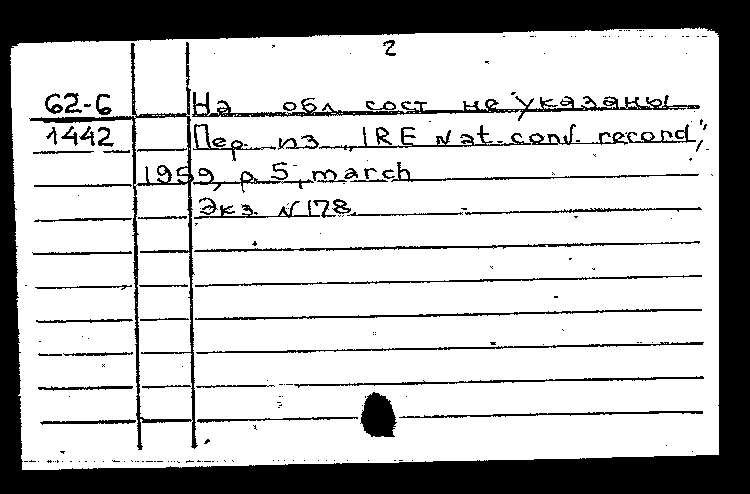 2
62-6 На обл. сост. не указаны
1442 Пер. из „IRE Nat. conv. record",
1959, p. 5, march
Экз. N 178.